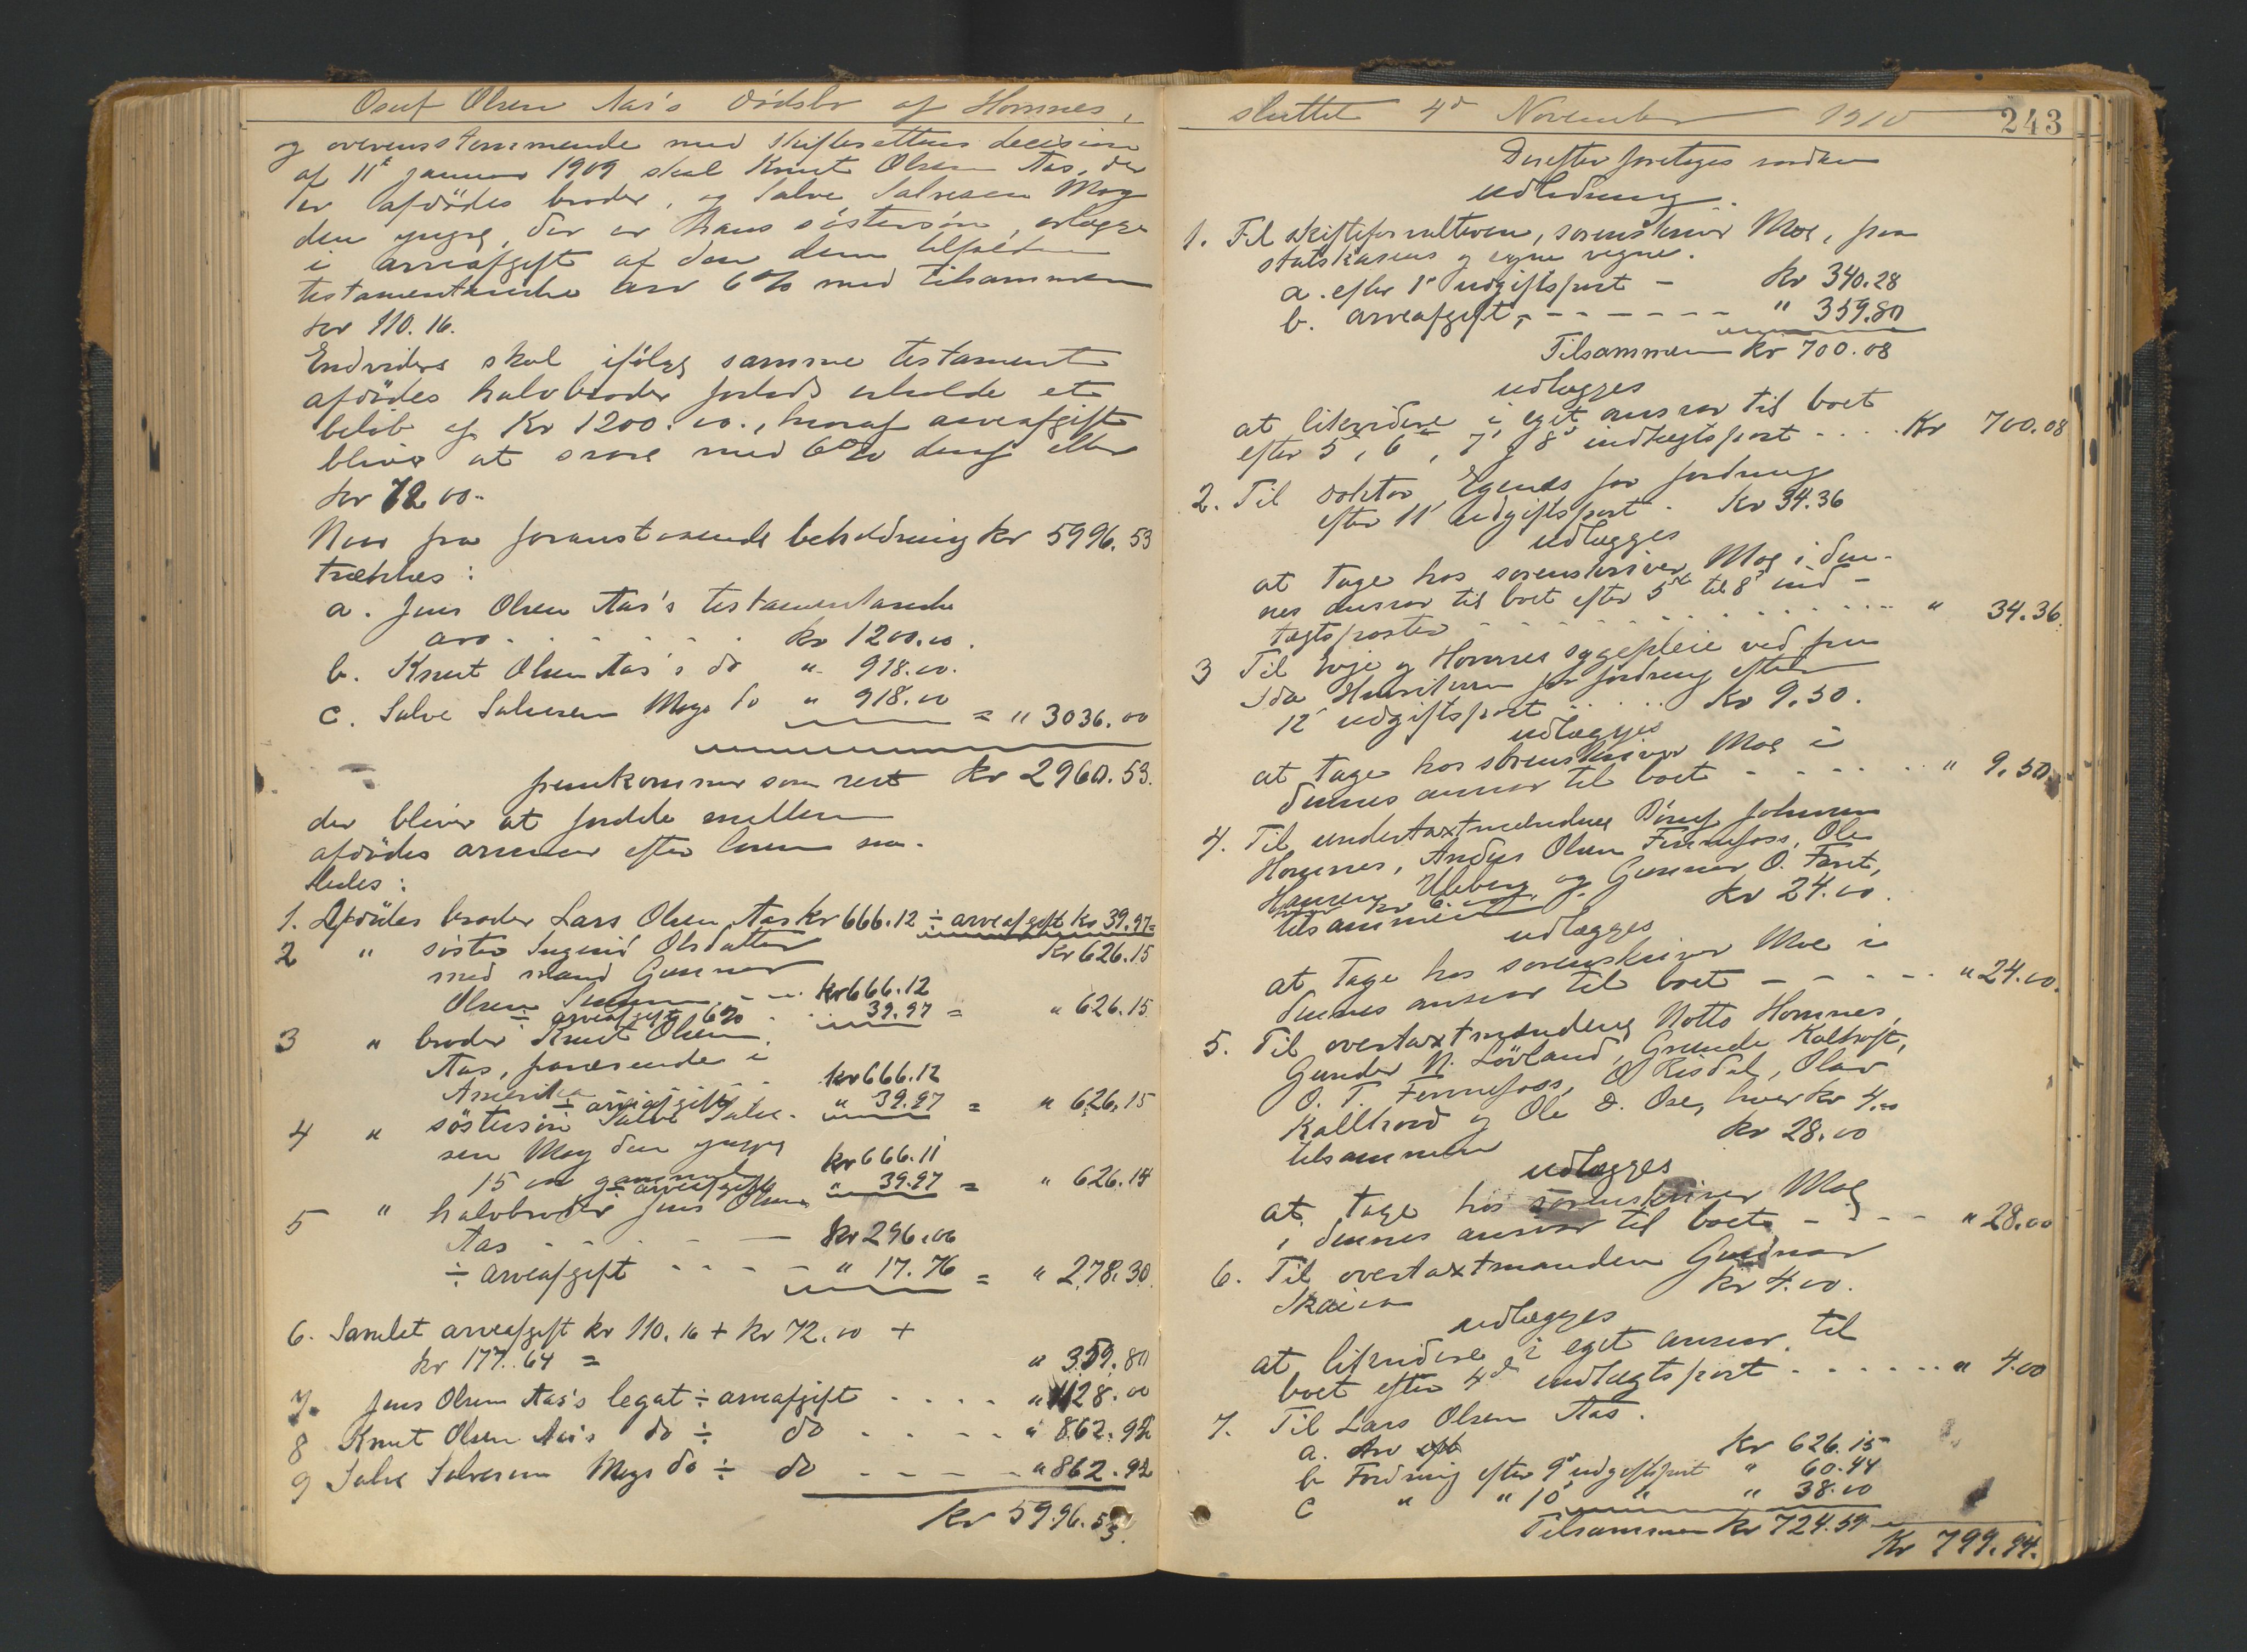 Osuf Olsen Aas's dödsbo af Hornnes,
og overensstemmende med skifterettens decision
af 11te januar 1909 skal Knut Olsen Aas, der
er afdödes broder, og Salve Salvesen Moy
den yngre, der er hans söstersön, erlægge
i arveafgift af den dem tilfaldne
testamentariske arv 6% med tilsammen
kr 110.16.
Endvidere skal ifölge samme testament
afdödes halvbroder forlods erholde et
belöb af Kr 1200.00., hvoraf arveafgift
bliver at svare med 6% deraf eller
kr 72.00.
Naar fra foranstaaende beholdning kr 5996.53
trækkes:
a. Jens Olsen Aas's testamentariske
arv - - - - - kr 1200.00.
b. Knut Olsen Aas's do " 918.00.
c. Salve Salvesen Moys do " 918.00 = " 3036.00
fremkommer som rest kr 2960.53.
der bliver at fordele mellem
afdödes arvinger efter loven saa-
ledes:
1. Afdödes broder Lars Olsen Aas kr 666.12 ÷ arveafgift Kr 39.97=
Kr 626.15
2 " söster Ingerid Olsdatter
med mand Gunnar
Olsen - - kr 666.12
÷ arveafgift 6% - - 39.97 = " 626.15
3 " broder Knut Olsen
Aas, fraværende i
Amerika - - kr 666.12
÷ arveafgift " 39.97 = " 626.15
4 " söstersön Salve Salve-
sen Moy den yngre
15 aar gammel kr 666.11
÷ arveafgift " 39.97 = " 626.14
5 " halvbroder Jens Olsen
Aas - - - - - kr 296.06
÷ arveafgift - - - - " 17.76 = " 278.30.
6. Samlet arveafgift kr 110.16 + kr 72.00 +
kr 177.64 = " 359.80
7. Jens Olsen Aas's legat ÷ arveafgift - - - - " 1128.00
8 Knut Olsen Aas's do ÷ do - - - - " 862.92
9 Salve Salvesen Moys do ÷ do - - - - " 862.92
kr 5996.53.
sluttet 4de November 1910
243
Derefter foretages saadan
udlodning.
1. Til skifteforvalteren, sorenskriver Moe, paa
statskassens og egne vegne.
a. efter 1ste udgiftspost - kr 340.28
b. arveafgift, - - - - - - " 359.80
Tilsammen kr 700.08
udlægges
at likvidere i eget ansvar til boet
efter 5, 6, 7 & 8de indtægtspost - - . Kr 700.08
2. Til doktor Egenes for fordring
efter 11te udgiftspost - Kr 34.36
udlægges
at tage hos sorenskriver Moe i den-
nes ansvar til boet efter 5te til 8de ind-
tægtsposter - - - - - - - - - " 34.36.
3 Til Evje og Hornnes sygepleie ved fru
Ida for fordring efter
12te udgiftspost . . . . . Kr 9.50.
udlægges
at tage hos sorenskriver Moe i
dennes ansvar til boet - - - - - " 9.50.
4. Til undertaxtmændene Johnsen
Hornnes, Anders Olsen Fennefoss, Ole
Hansen Uleberg og Gunnar O. Faret,
hver kr 6.00,
tilsammen kr 24.00.
udlægges
at tage hos sorenskriver Moe i
dennes ansvar til boet - - - - - " 24.00.
5. Til overtaxtmændene Notto Hornnes,
Gunder N. Lövland, Grunde Kalhoft,
O. T. Fennefoss, O Risdal, Olav
Kallhovd og Ole D. Ose, hver kr 4.00
tilsammen kr 28.00
udlægges
at tage hos sorenskriver Moe
i dennes ansvar til boet - - - - " 28.00
6. Til overtaxtmanden Gunnar
Skaiaa kr 4.00.
udlægges
at likvidere i eget ansvar til
boet efter 4de indtægtspost - - - - - - " 4.00
7. Til Lars Olsen Aas.
a. Arv kr 626.15
b Fordring efter 9de udgiftspost " 60.44
c " " 10de " " 38.00
Tilsammen Kr 724.59
Kr 799.94.